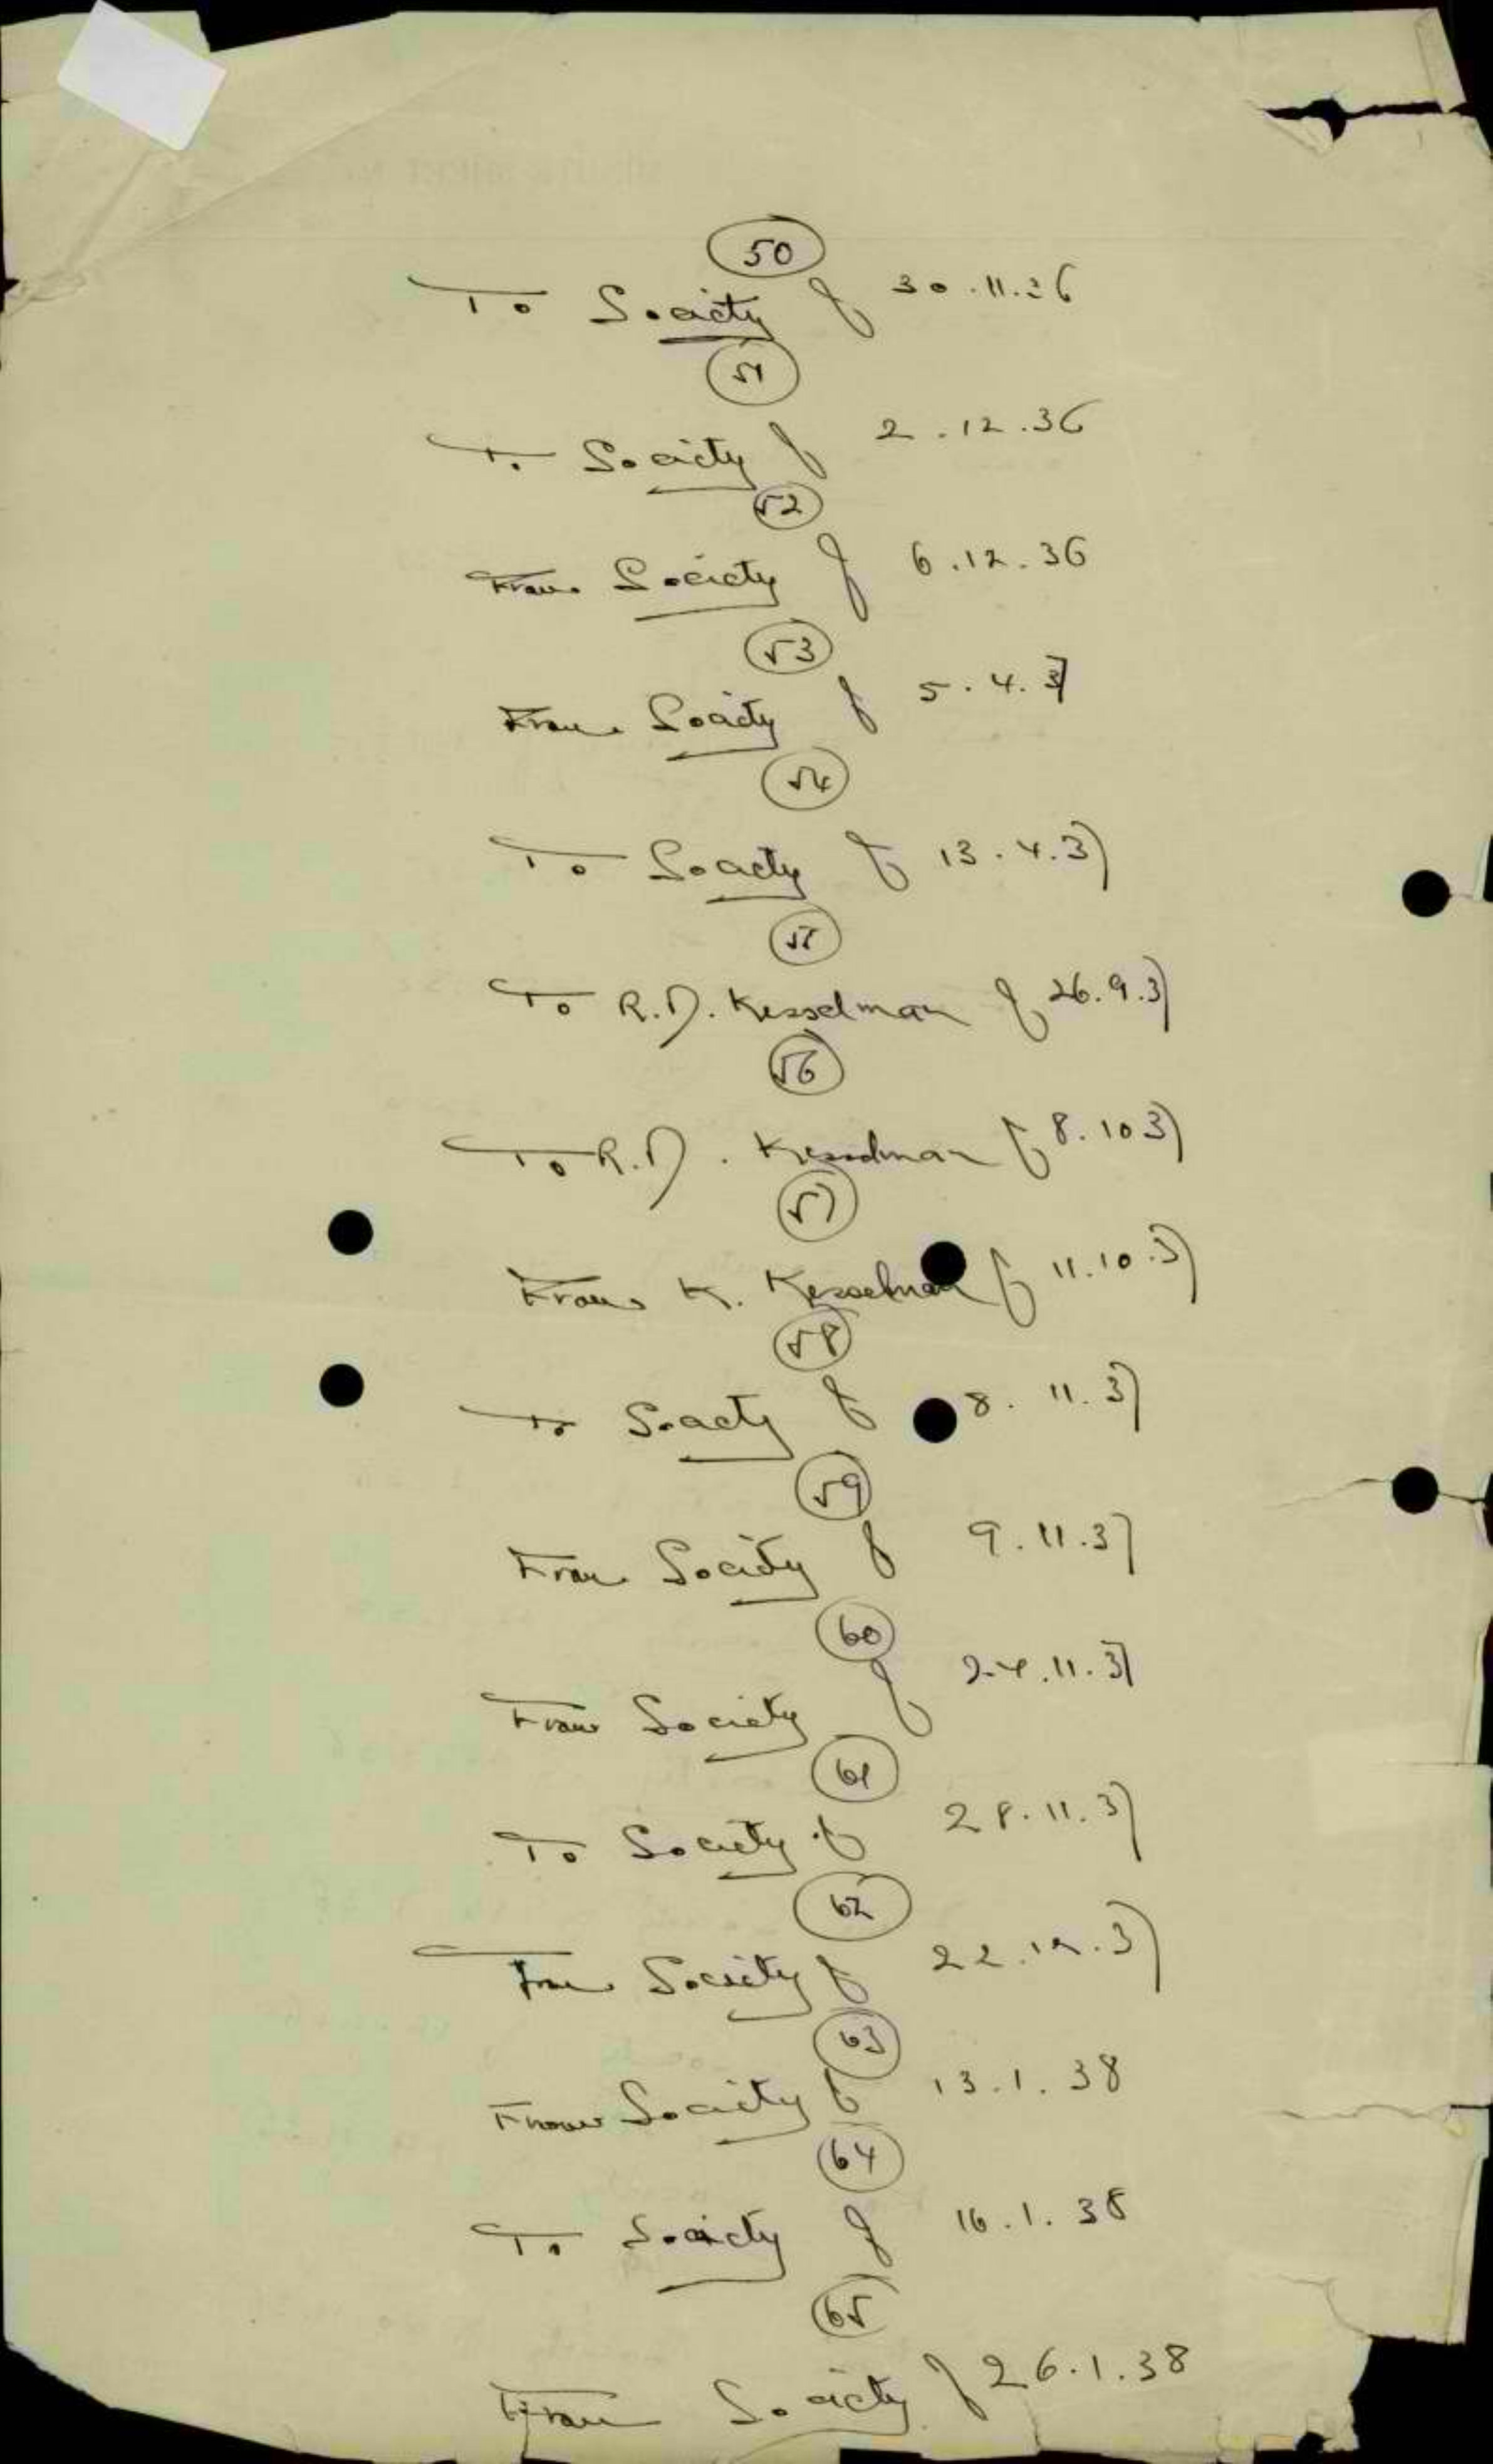 50
To Society of 30.11.36
51
To Society of 2.12.36
52
From Society of 6.12.36
53
From Society of 5.4.37
54
To Society of 13.4.37
55
To R.D. Kesselman of 26.9.37
56
To R.D. Kesselman of 8.10.37
57
From K. Kesselman of 11.10.37
58
To Society of 8.11.37
59
From Society of 9.11.37
60
From Society of 24.11.37
61
To Society of 28.11.37
62
From Society of 22.12.37
63
From Society of 13.1.38
64
To Society of 16.1.38
65
From Society of 26.1.38